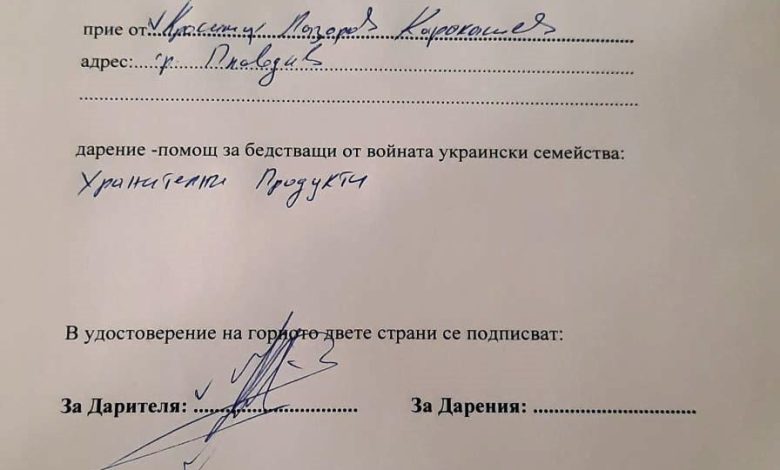 прие от Красимир Лазаров Каракашев
адрес: гр. Пловдив
дарение -помощ за бедстващи от войната украински семейства:
Хранителни Продукти
В удостоверение на горното двете страни се подписват:
За Дарителя: За Дарения: